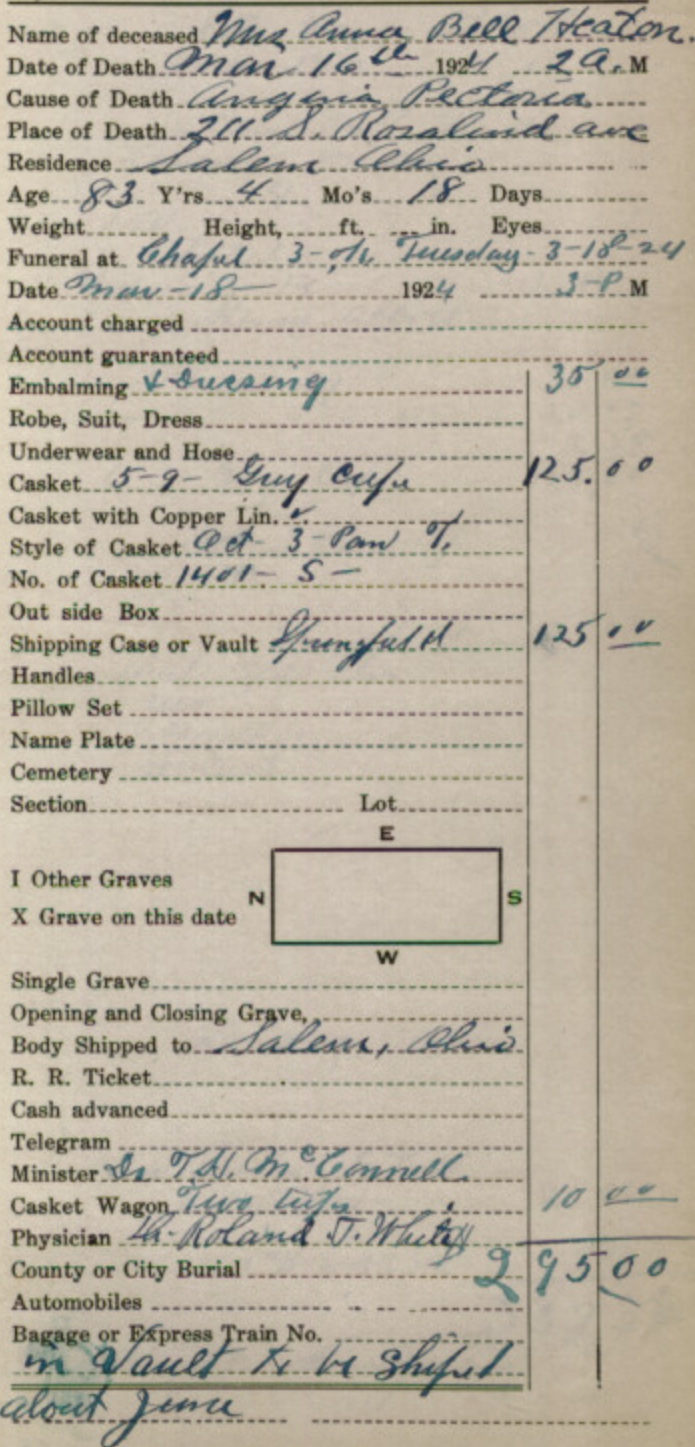 Name of deceased Mrs Anna Bell Heaton.
Date of Death Mar 16th 1924 2 A. M
Cause of Death Angina Pectoria
Place of Death 211 S. Rosalind ave
Residence Salem Ohio
Age 83 Y'rs 4 Mo's 18 Days
Weight Height, ft. in. Eyes
Funeral at Chapel 3- Tuesday - 3-18-24
Date Mar-18- 1924 3-P M
Account charged
Account guaranteed
Embalming & Dressing 35 00
Robe, Suit, Dress
Underwear and Hose
Casket 5-9- Grey Crepe 125.00
Casket with Copper Lin.
Style of Casket Oct 3-Pan T.
No. of Casket 1401- S-
Out side Box
Shipping Case or Vault Springfield 125 00
Handles
Pillow Set
Name Plate
Cemetery
Section Lot
E
I Other Graves
N S
X Grave on this date
W
Single Grave
Opening and Closing Grave,
Body Shipped to Salem, Ohio
R. R. Ticket
Cash advanced
Telegram
Minister Dr T. H. McConnell
Casket Wagon Two trips 10 00
Physician Dr. Roland T. White
County or City Burial 295 00
Automobiles
Bagage or Express Train No.
in Vault to be Shiped
about June